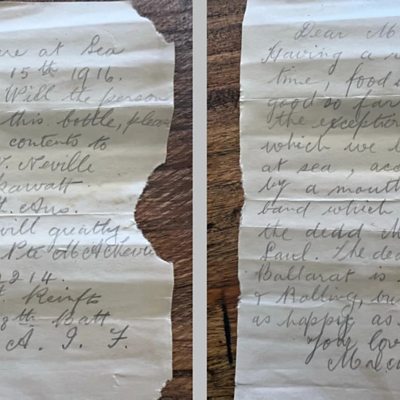 ere at Sea
15th 1916.
Will the person
this bottle, please
contents to
Neville
kawatt
Aus.
will greatly
Pte McAchern
214.
Reinft
8th Batt
A. I. F.
Dear M
Having a r
time, food
good so far
the exception
which we
at sea, acc
by a mouth
band which
the dead M
Laul. The dea
Ballarat is
& Rolling, bu
as happy as
You lov
Malc